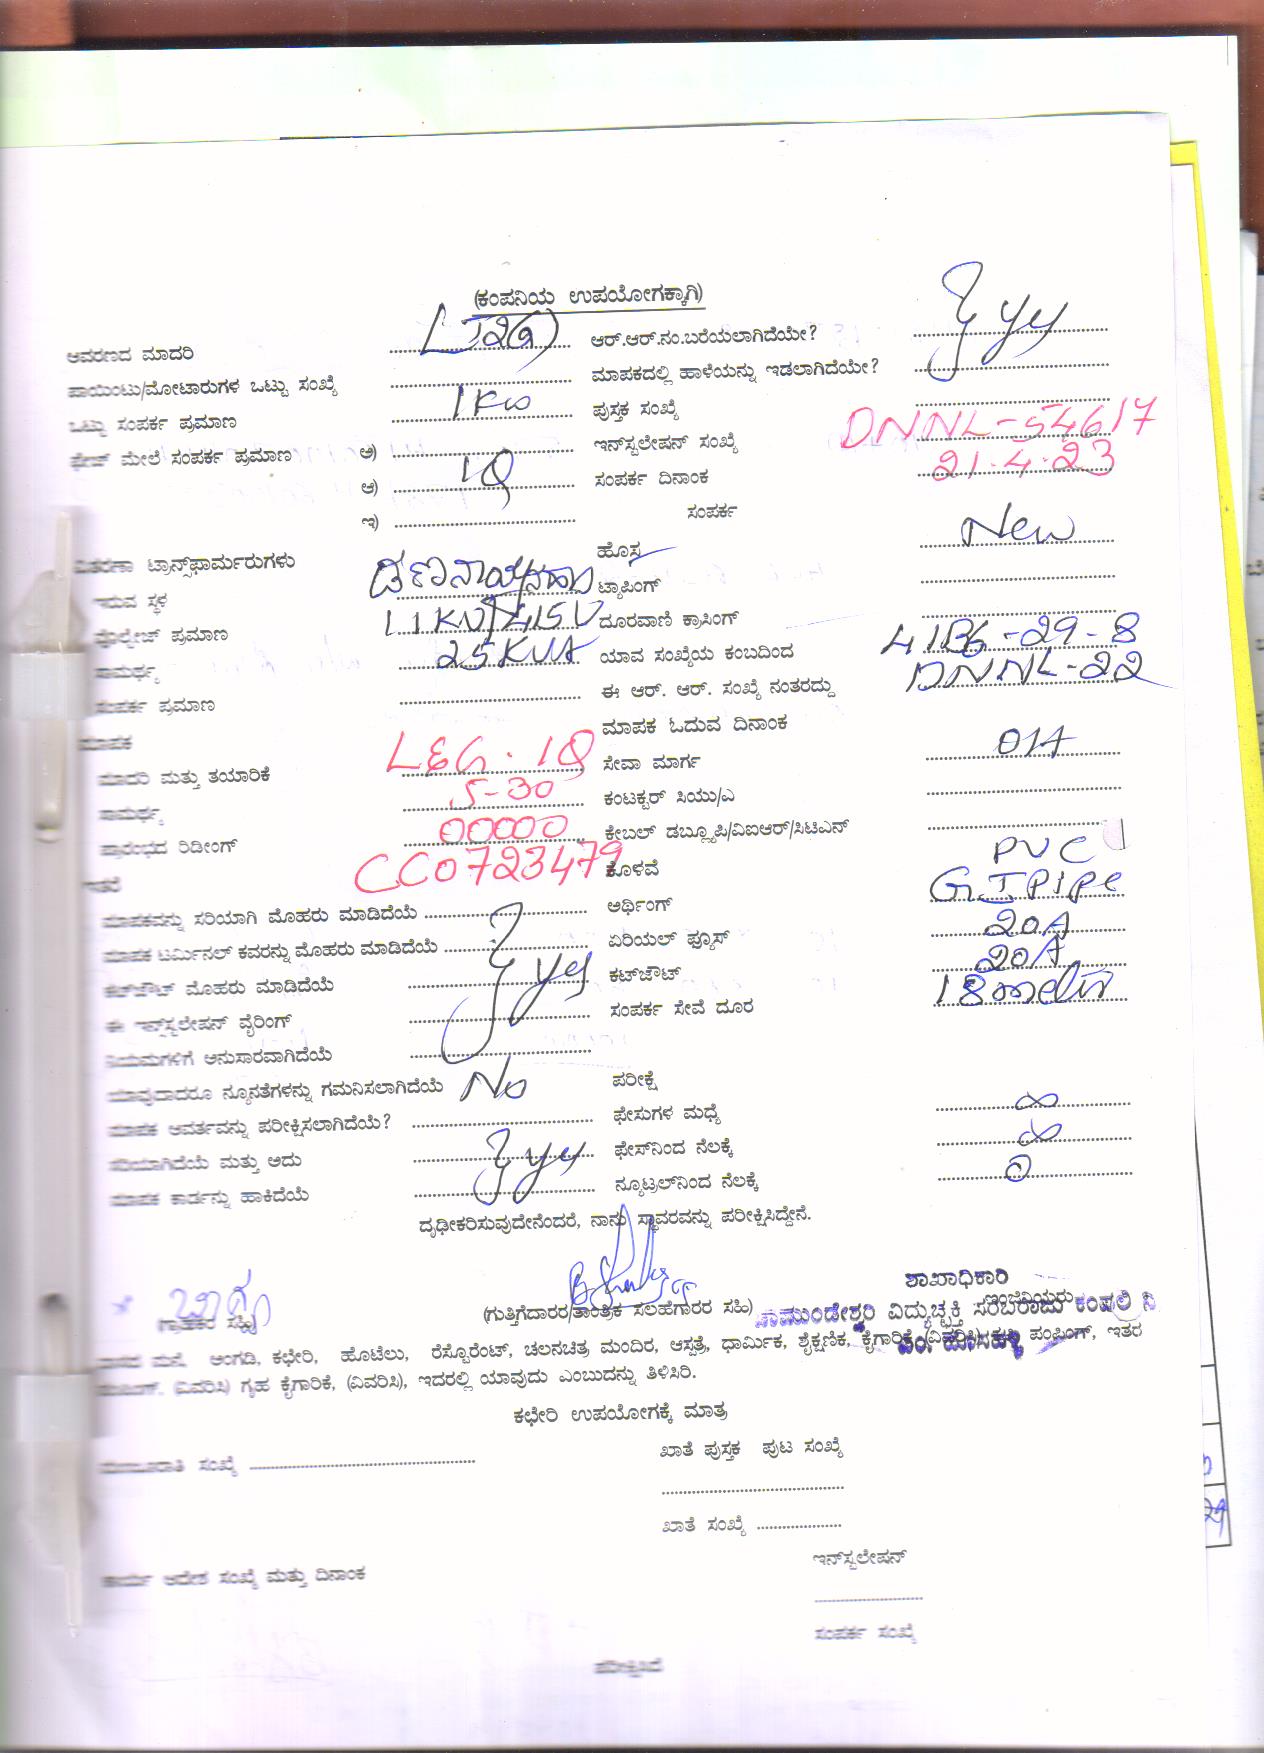 (ಕಂಪನಿಯ ಉಪಯೋಗಕ್ಕಾಗಿ)
ಆವರಣದ ಮಾದರಿ ಆರ್.ಆರ್.ನಂ.ಬರೆಯಲಾಗಿದೆಯೇ?
ಪಾಯಿಂಟು/ಮೋಟಾರುಗಳ ಒಟ್ಟು ಸಂಖ್ಯೆ ಮಾಪಕದಲ್ಲಿ ಹಾಳೆಯನ್ನು ಇಡಲಾಗಿದೆಯೇ?
ಒಟ್ಟು ಸಂಪರ್ಕ ಪ್ರಮಾಣ 1 KW ಪುಸ್ತಕ ಸಂಖ್ಯೆ
ಫೇಜ್ ಮೇಲೆ ಸಂಪರ್ಕ ಪ್ರಮಾಣ ಅ) ಇನ್‌ಸ್ಟಲೇಷನ್ ಸಂಖ್ಯೆ DNNL-54617
ಆ) 1Q ಸಂಪರ್ಕ ದಿನಾಂಕ 21.4.23
ಇ) ಸಂಪರ್ಕ
ವಿತರಣಾ ಟ್ರಾನ್ಸ್‌ಫಾರ್ಮರುಗಳು ಹೊಸ New
ಇರುವ ಸ್ಥಳ ಟ್ಯಾಪಿಂಗ್
ವೋಲ್ಟೇಜ್ ಪ್ರಮಾಣ 11KV/415V ದೂರವಾಣಿ ಕ್ರಾಸಿಂಗ್
ಸಾಮರ್ಥ್ಯ 25KVA ಯಾವ ಸಂಖ್ಯೆಯ ಕಂಬದಿಂದ 41B6-29-8
ಸಂಪರ್ಕ ಪ್ರಮಾಣ ಈ ಆರ್. ಆರ್. ಸಂಖ್ಯೆ ನಂತರದ್ದು DNNL-22
ಮಾಪಕ ಮಾಪಕ ಓದುವ ದಿನಾಂಕ
ಮಾದರಿ ಮತ್ತು ತಯಾರಿಕೆ L&G. 1Q ಸೇವಾ ಮಾರ್ಗ OH
ಸಾಮರ್ಥ್ಯ 5-30 ಕಂಟಕ್ಟರ್ ಸಿಯು/ಎ
ಪ್ರಾರಂಭದ ರಿಡೀಂಗ್ 00000 ಕೇಬಲ್ ಡಬ್ಲ್ಯೂಪಿ/ವಿಐಆರ್/ಸಿಟಿಎನ್
ಇತರೆ CC0723479 ಕೊಳವೆ PVC
ಮಾಪಕವನ್ನು ಸರಿಯಾಗಿ ಮೊಹರು ಮಾಡಿದೆಯೆ ಅರ್ಥಿಂಗ್ GI Pipe
ಮಾಪಕ ಟರ್ಮಿನಲ್ ಕವರನ್ನು ಮೊಹರು ಮಾಡಿದೆಯೆ ಏರಿಯಲ್ ಫ್ಯೂಸ್ 20A
ಕಟ್‌ಔಟ್ ಮೊಹರು ಮಾಡಿದೆಯೆ ಕಟ್‌ಔಟ್ 20A
ಈ ಇನ್ಸ್‌ಟಲೇಷನ್ ವೈರಿಂಗ್ ಸಂಪರ್ಕ ಸೇವೆ ದೂರ
ನಿಯಮಗಳಿಗೆ ಅನುಸಾರವಾಗಿದೆಯೆ
ಯಾವುದಾದರೂ ನ್ಯೂನತೆಗಳನ್ನು ಗಮನಿಸಲಾಗಿದೆಯೆ No ಪರೀಕ್ಷೆ
ಮಾಪಕ ಆವರ್ತವನ್ನು ಪರೀಕ್ಷಿಸಲಾಗಿದೆಯೆ? ಫೇಸುಗಳ ಮಧ್ಯೆ ∞
ಸರಿಯಾಗಿದೆಯೆ ಮತ್ತು ಅದು ಫೇಸ್‌ನಿಂದ ನೆಲಕ್ಕೆ ∞
ಮಾಪಕ ಕಾರ್ಡನ್ನು ಹಾಕಿದೆಯೆ ನ್ಯೂಟ್ರಲ್‌ನಿಂದ ನೆಲಕ್ಕೆ 0
ದೃಢೀಕರಿಸುವುದೇನೆಂದರೆ, ನಾನು ಸ್ಥಾವರವನ್ನು ಪರೀಕ್ಷಿಸಿದ್ದೇನೆ.
ಶಾಖಾಧಿಕಾರಿ
(ಗ್ರಾಹಕರ ಸಹಿ) (ಗುತ್ತಿಗೆದಾರರ/ತಾಂತ್ರಿಕ ಸಲಹೆಗಾರರ ಸಹಿ) ಇಂಜಿನಿಯರು
ಚಾಮುಂಡೇಶ್ವರಿ ವಿದ್ಯುಚ್ಛಕ್ತಿ ಸರಬರಾಜು ಕಂಪನಿ ನಿ
ವಾಸದ ಮನೆ, ಅಂಗಡಿ, ಕಛೇರಿ, ಹೊಟೆಲು, ರೆಸ್ಟೊರೆಂಟ್, ಚಲನಚಿತ್ರ ಮಂದಿರ, ಆಸ್ಪತ್ರೆ, ಧಾರ್ಮಿಕ, ಶೈಕ್ಷಣಿಕ, ಕೈಗಾರಿಕೆ (ವಿವರಿಸಿ) ಕೃಷಿ ಪಂಪಿಂಗ್, ಇತರ
ಪಂಪಿಂಗ್. (ವಿವರಿಸಿ) ಗೃಹ ಕೈಗಾರಿಕೆ, (ವಿವರಿಸಿ), ಇದರಲ್ಲಿ ಯಾವುದು ಎಂಬುದನ್ನು ತಿಳಿಸಿರಿ.
ಕಛೇರಿ ಉಪಯೋಗಕ್ಕೆ ಮಾತ್ರ
ಮಂಜೂರಾತಿ ಸಂಖ್ಯೆ ಖಾತೆ ಪುಸ್ತಕ ಪುಟ ಸಂಖ್ಯೆ
ಖಾತೆ ಸಂಖ್ಯೆ
ಇನ್‌ಸ್ಟಲೇಷನ್
ಕಾರ್ಯ ಆದೇಶ ಸಂಖ್ಯೆ ಮತ್ತು ದಿನಾಂಕ
ಸಂಪರ್ಕ ಸಂಖ್ಯೆ
ಪರೀಕ್ಷಿಸಿದೆ